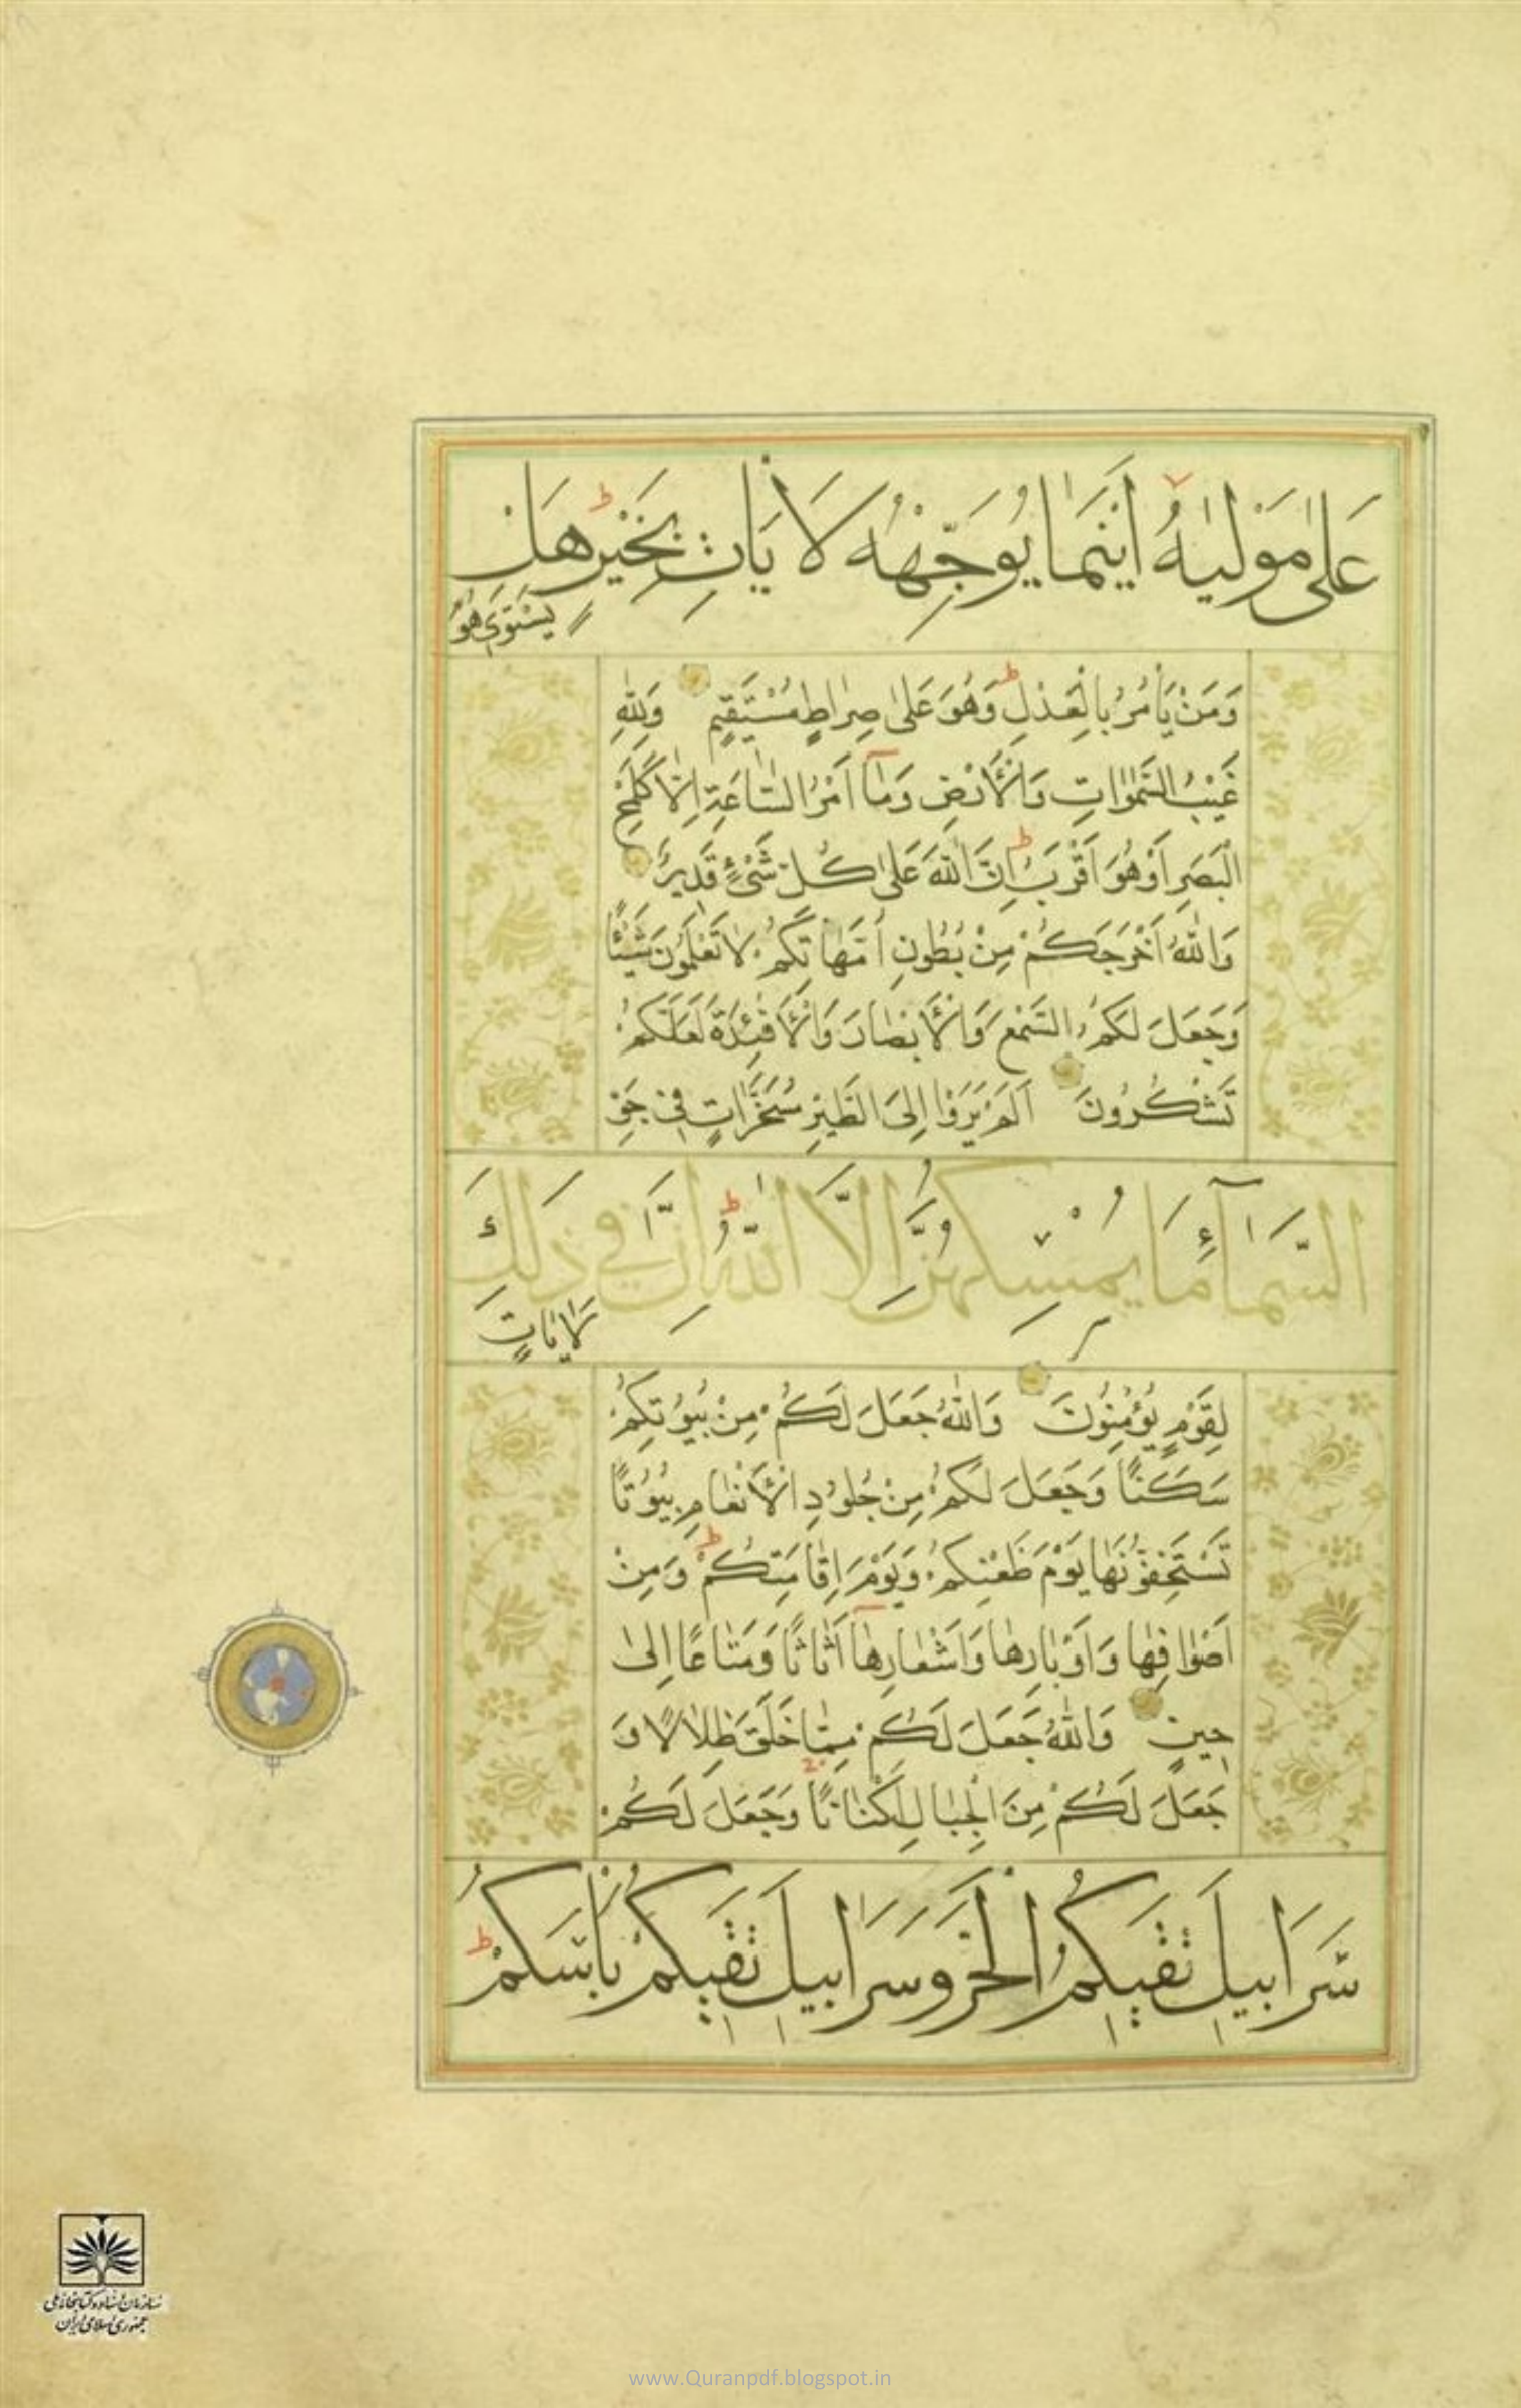 عَلٰى مَوْلٰیهُ اَیْنَمٰا یُوَجِّهْهُ لَا یَاْتِ بِخَیْرٍ هَلْ
یَسْتَوِی هُوَ
وَمَنْ یَأْمُرُ بِالْعَدْلِ وَهُوَ عَلٰى صِرٰاطٍ مُسْتَقِیمٍ وَلِلّٰهِ
غَیْبُ السَّمٰوٰاتِ وَالْأَرْضِ وَمٰآ اَمْرُ السّٰاعَةِ اِلّٰا كَلَمْحِ
الْبَصَرِ اَوْ هُوَ اَقْرَبُ اِنَّ اللّٰهَ عَلٰى كُلِّ شَیْءٍ قَدِیرٌ
وَاللّٰهُ اَخْرَجَكُمْ مِنْ بُطُونِ اُمَّهٰاتِكُمْ لٰا تَعْلَمُونَ شَیْئًا
وَجَعَلَ لَكُمُ السَّمْعَ وَالْأَبْصٰارَ وَالْأَفْئِدَةَ لَعَلَّكُمْ
تَشْكُرُونَ اَلَمْ یَرَوْا اِلَى الطَّیْرِ مُسَخَّرٰاتٍ فِی جَوِّ
السَّمٰآءِ مَا یُمْسِكُهُنَّ اِلَّا اللّٰهُ اِنَّ فِی ذٰلِكَ
لَاٰیٰاتٍ
لِقَوْمٍ یُؤْمِنُونَ وَاللّٰهُ جَعَلَ لَكُمْ مِنْ بُیُوتِكُمْ
سَكَنًا وَجَعَلَ لَكُمْ مِنْ جُلُودِ الْأَنْعٰامِ بُیُوتًا
تَسْتَخِفُّونَهٰا یَوْمَ ظَعْنِكُمْ وَیَوْمَ اِقٰامَتِكُمْ وَمِنْ
اَصْوٰافِهٰا وَاَوْبٰارِهٰا وَاَشْعٰارِهٰآ اَثٰاثًا وَمَتٰاعًا اِلىٰ
حِینٍ وَاللّٰهُ جَعَلَ لَكُمْ مِمّٰا خَلَقَ ظِلٰالًا وَ
جَعَلَ لَكُمْ مِنَ الْجِبٰالِ اَكْنٰانًا وَجَعَلَ لَكُمْ
سَّرَابِیلَ تَقِیكُمُ الْحَرَّ وَسَرَابِیلَ تَقِیكُمْ بَأْسَكُمْ
سازمان اسناد و کتابخانه ملی
جمهوری اسلامی ایران
www.Quranpdf.blogspot.in